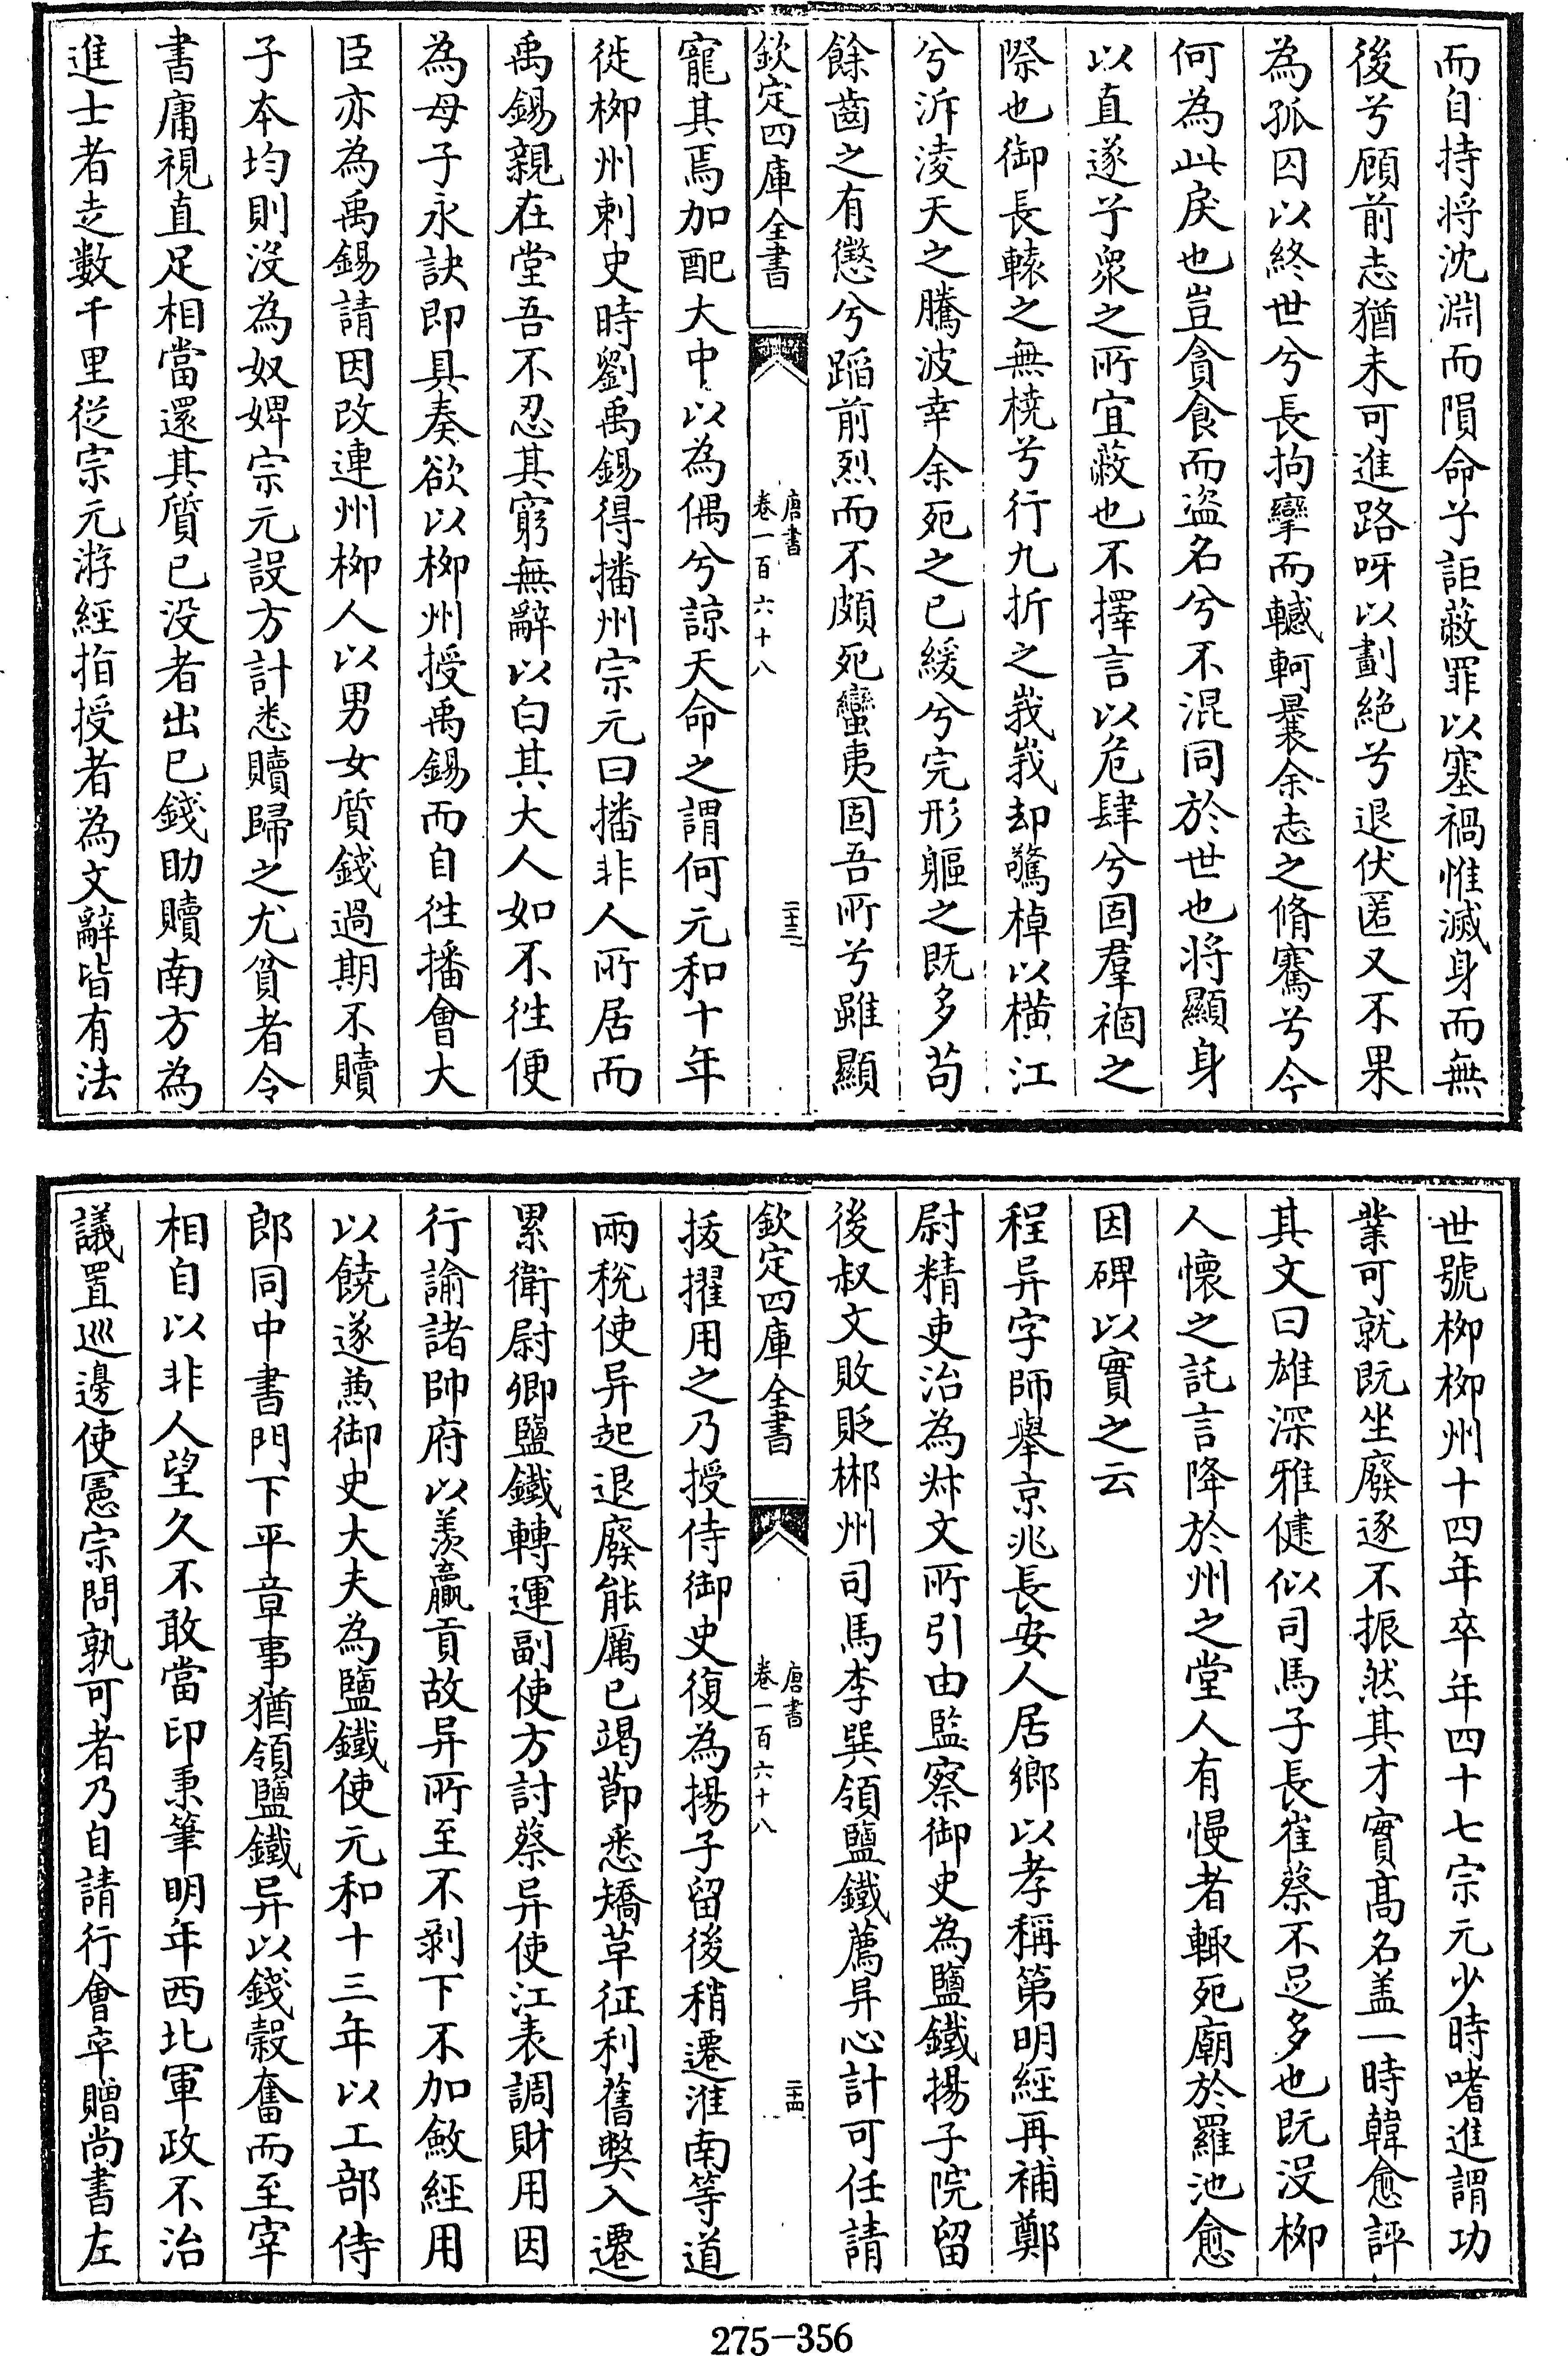 而自持将沈淵而隕命兮詎蔽罪以塞禍惟滅身而無
後兮顧前志猶未可進路呀以劃絶兮退伏匿又不果
為孤囚以終世兮長拘攣而轗軻曩余志之脩騫兮今
何為此戾也豈貪食而盗名兮不混同於世也将顯身
以直遂兮衆之所宜蔽也不擇言以危肆兮固羣禍之
際也御長轅之無橈兮行九折之峩峩却驚棹以橫江
兮泝淩天之騰波幸余死之已緩兮完形軀之既多苟
餘齒之有懲兮蹈前烈而不頗死蠻夷固吾所兮雖顯
欽定四庫全書
唐書
卷一百六十八
二十三
寵其焉加配大中以為偶兮諒天命之謂何元和十年
徙栁州刺史時劉禹錫得播州宗元曰播非人所居而
禹錫親在堂吾不忍其窮無辭以白其大人如不往便
為母子永訣即具奏欲以栁州授禹錫而自往播會大
臣亦為禹錫請因改連州栁人以男女質錢過期不贖
子本均則没為奴婢宗元設方計悉贖歸之尤貧者令
書庸視直足相當還其質已没者出已錢助贖南方為
進士者走數千里從宗元游經指授者為文辭皆有法
世號栁栁州十四年卒年四十七宗元少時嗜進謂功
業可就既坐廢逐不振然其才實髙名盖一時韓愈評
其文曰雄深雅健似司馬子長崔蔡不足多也既没栁
人懷之託言降於州之堂人有慢者輒死廟於羅池愈
因碑以實之云
程异字師舉京兆長安人居鄉以孝稱第明經再補鄭
尉精吏治為叔文所引由監察御史為鹽鐵揚子院留
後叔文敗貶郴州司馬李巽領鹽鐵薦异心計可任請
欽定四庫全書
唐書
卷一百六十八
二十四
拔擢用之乃授侍御史復為揚子留後稍遷淮南等道
兩稅使异起退廢能厲已竭節悉矯革征利舊弊入遷
累衛尉卿鹽鐵轉運副使方討蔡异使江表調財用因
行諭諸帥府以羡贏貢故异所至不剥下不加斂經用
以饒遂兼御史大夫為鹽鐵使元和十三年以工部侍
郎同中書門下平章事猶領鹽鐵异以錢穀奮而至宰
相自以非人望久不敢當印秉筆明年西北軍政不治
議置巡邊使憲宗問孰可者乃自請行會卒贈尚書左
275-356